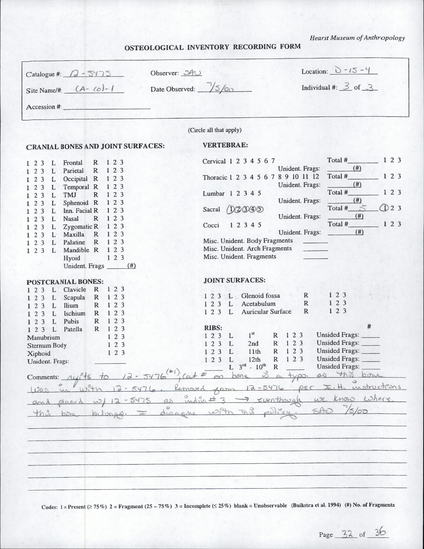 Hearst Museum of Anthropology
OSTEOLOGICAL INVENTORY RECORDING FORM
Catalogue #: 12-5475 Observer: SAU Location: D-15-4
Site Name/# CA-Col-1 Date Observed: 7/5/00 Individual #: 3 of 3
Accession #
(Circle all that apply)
CRANIAL BONES AND JOINT SURFACES:
1 2 3 L Frontal R 1 2 3
1 2 3 L Parietal R 1 2 3
1 2 3 L Occipital R 1 2 3
1 2 3 L Temporal R 1 2 3
1 2 3 L TMJ R 1 2 3
1 2 3 L Sphenoid R 1 2 3
1 2 3 L Inn. Facial R 1 2 3
1 2 3 L Nasal R 1 2 3
1 2 3 L Zygomatic R 1 2 3
1 2 3 L Maxilla R 1 2 3
1 2 3 L Palatine R 1 2 3
1 2 3 L Mandible R 1 2 3
Hyoid 1 2 3
Unident. Frags (#)
POSTCRANIAL BONES:
1 2 3 L Clavicle R 1 2 3
1 2 3 L Scapula R 1 2 3
1 2 3 L Ilium R 1 2 3
1 2 3 L Ischium R 1 2 3
1 2 3 L Pubis R 1 2 3
1 2 3 L Patella R 1 2 3
Manubrium 1 2 3
Sternum Body 1 2 3
Xiphoid 1 2 3
Unident. Frags:
VERTEBRAE:
Cervical 1 2 3 4 5 6 7 Total # 1 2 3
Unident. Frags: (#)
Thoracic 1 2 3 4 5 6 7 8 9 10 11 12 Total #
Unident. Frags: (#)
Lumbar 1 2 3 4 5 Total #
Unident. Frags: (#)
Sacral 1 2 3 4 5 Total # 5 1 2 3
Unident. Frags: (#)
Cocci 1 2 3 4 5 Total # 1 2 3
Unident. Frags: (#)
Misc. Unident. Body Fragments
Misc. Unident. Arch Fragments
Misc. Unident. Fragments
JOINT SURFACES:
1 2 3 L Glenoid fossa R 1 2 3
1 2 3 L Acetabulum R 1 2 3
1 2 3 L Auricular Surface R 1 2 3
RIBS: #
1 2 3 L 1st R 1 2 3 Unsided Frags:
1 2 3 L 2nd R 1 2 3 Unsided Frags:
1 2 3 L 11th R 1 2 3 Unsided Frags:
1 2 3 L 12th R 1 2 3 Unsided Frags:
L 3rd - 10th R Unsided Frags:
Comments: to 12-5476 (#1) cat # on bone is a typo as this bone
was in with 12-5476. Removed from 12-5476 per I.H. instructions
and placed w/ 12-5475 as indiv # 3 → eventhough we know where
this bone belongs. I disagree with this policy SAU 7/5/00
Codes: 1 = Present (≥ 75%) 2 = Fragment (25 – 75%) 3 = Incomplete (≤ 25%) blank = Unobservable (Buikstra et al. 1994) (#) No. of Fragments
Page 32 of 36